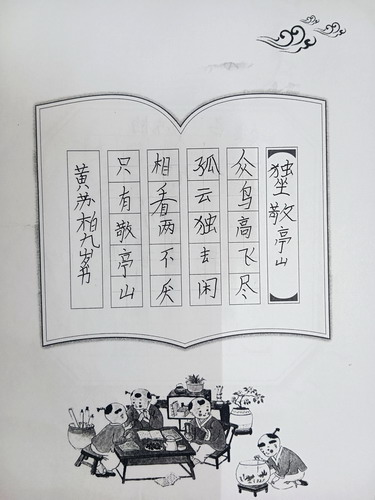 独坐敬亭山
众鸟高飞尽
孤云独去闲
相看两不厌
只有敬亭山
黄苏柏九岁书